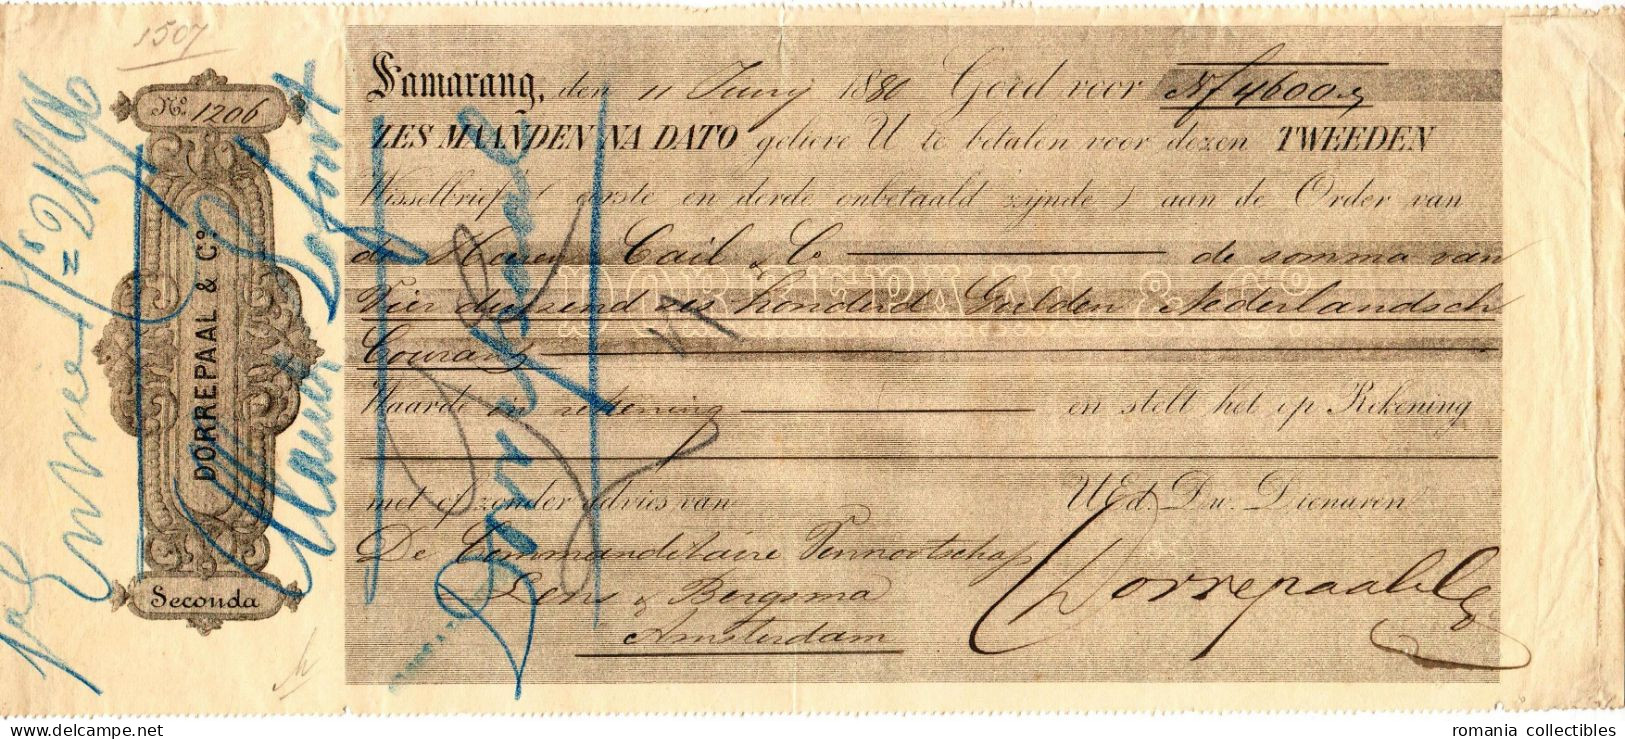 1507
No. 1206
DORREPAAL & Co.
Seconda
Samarang, den 11 Juny 1880 Goed voor Nf 4600.
ZES MAANDEN NA DATO gelieve U te betalen voor dezen TWEEDEN
Wisselbrief (eerste en derde onbetaald zijnde) aan de Order van
de Heeren Cail & Co de somma van
DORREPAAL & Co.
Vier duizend zes honderd Gulden Nederlandsch
Courant
Waarde in rekening en stelt het op Rekening
met of zonder advies van UEd. Dw. Dienaren
De Commanditaire Vennootschap
Lens & Bergsma
Amsterdam
Dorrepaal & Co
Dorrepaal
romania collectibles